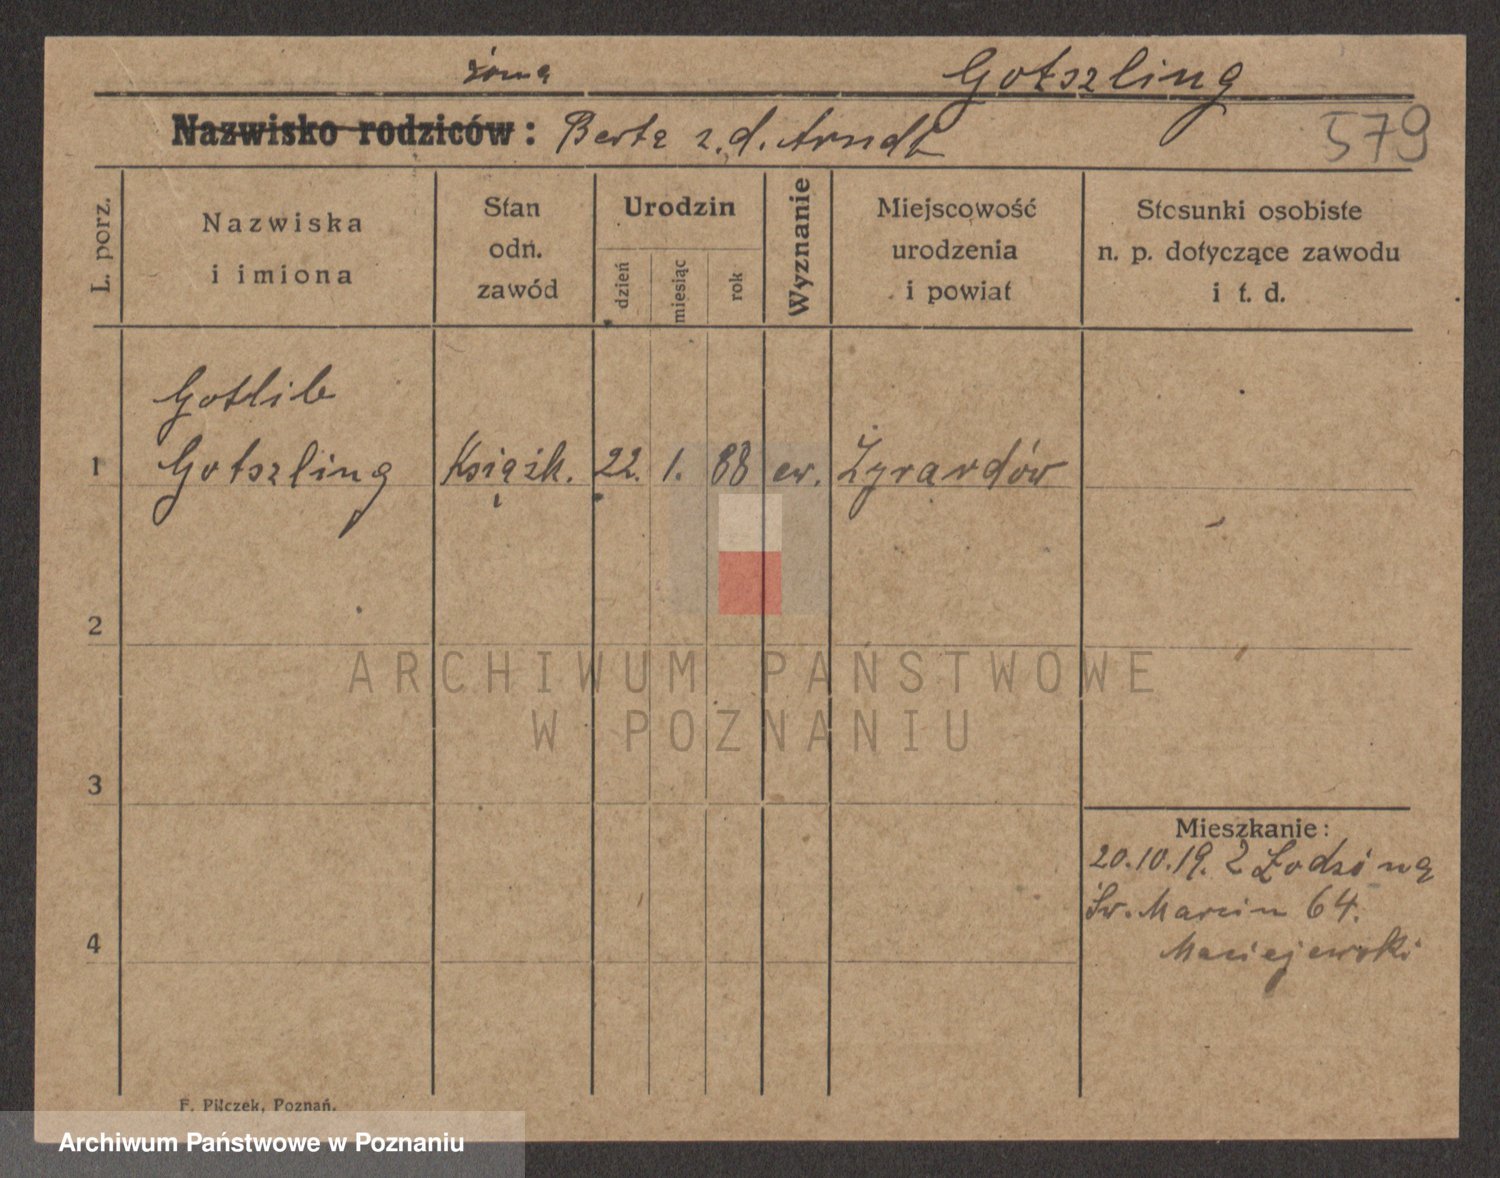 żona Gotszling
Nazwisko rodziców: Berta z.d. Arndt 579
L. porz.
Nazwiska
i imiona
Stan
odn.
zawód
Urodzin
dzień
miesiąc
rok
Wyznanie
Miejscowość
urodzenia
i powiat
Stosunki osobiste
n. p. dotyczące zawodu
i t. d.
Gotlib
1 Gotszling Książk. 22. 1. 88 ew. Żyrardów
2
ARCHIWUM PAŃSTWOWE
W POZNANIU
3
Mieszkanie:
20.10.19. z Łodzi na
Św. Marcin 64.
4 Maciejewski
F. Pilczek, Poznań.
Archiwum Państwowe w Poznaniu